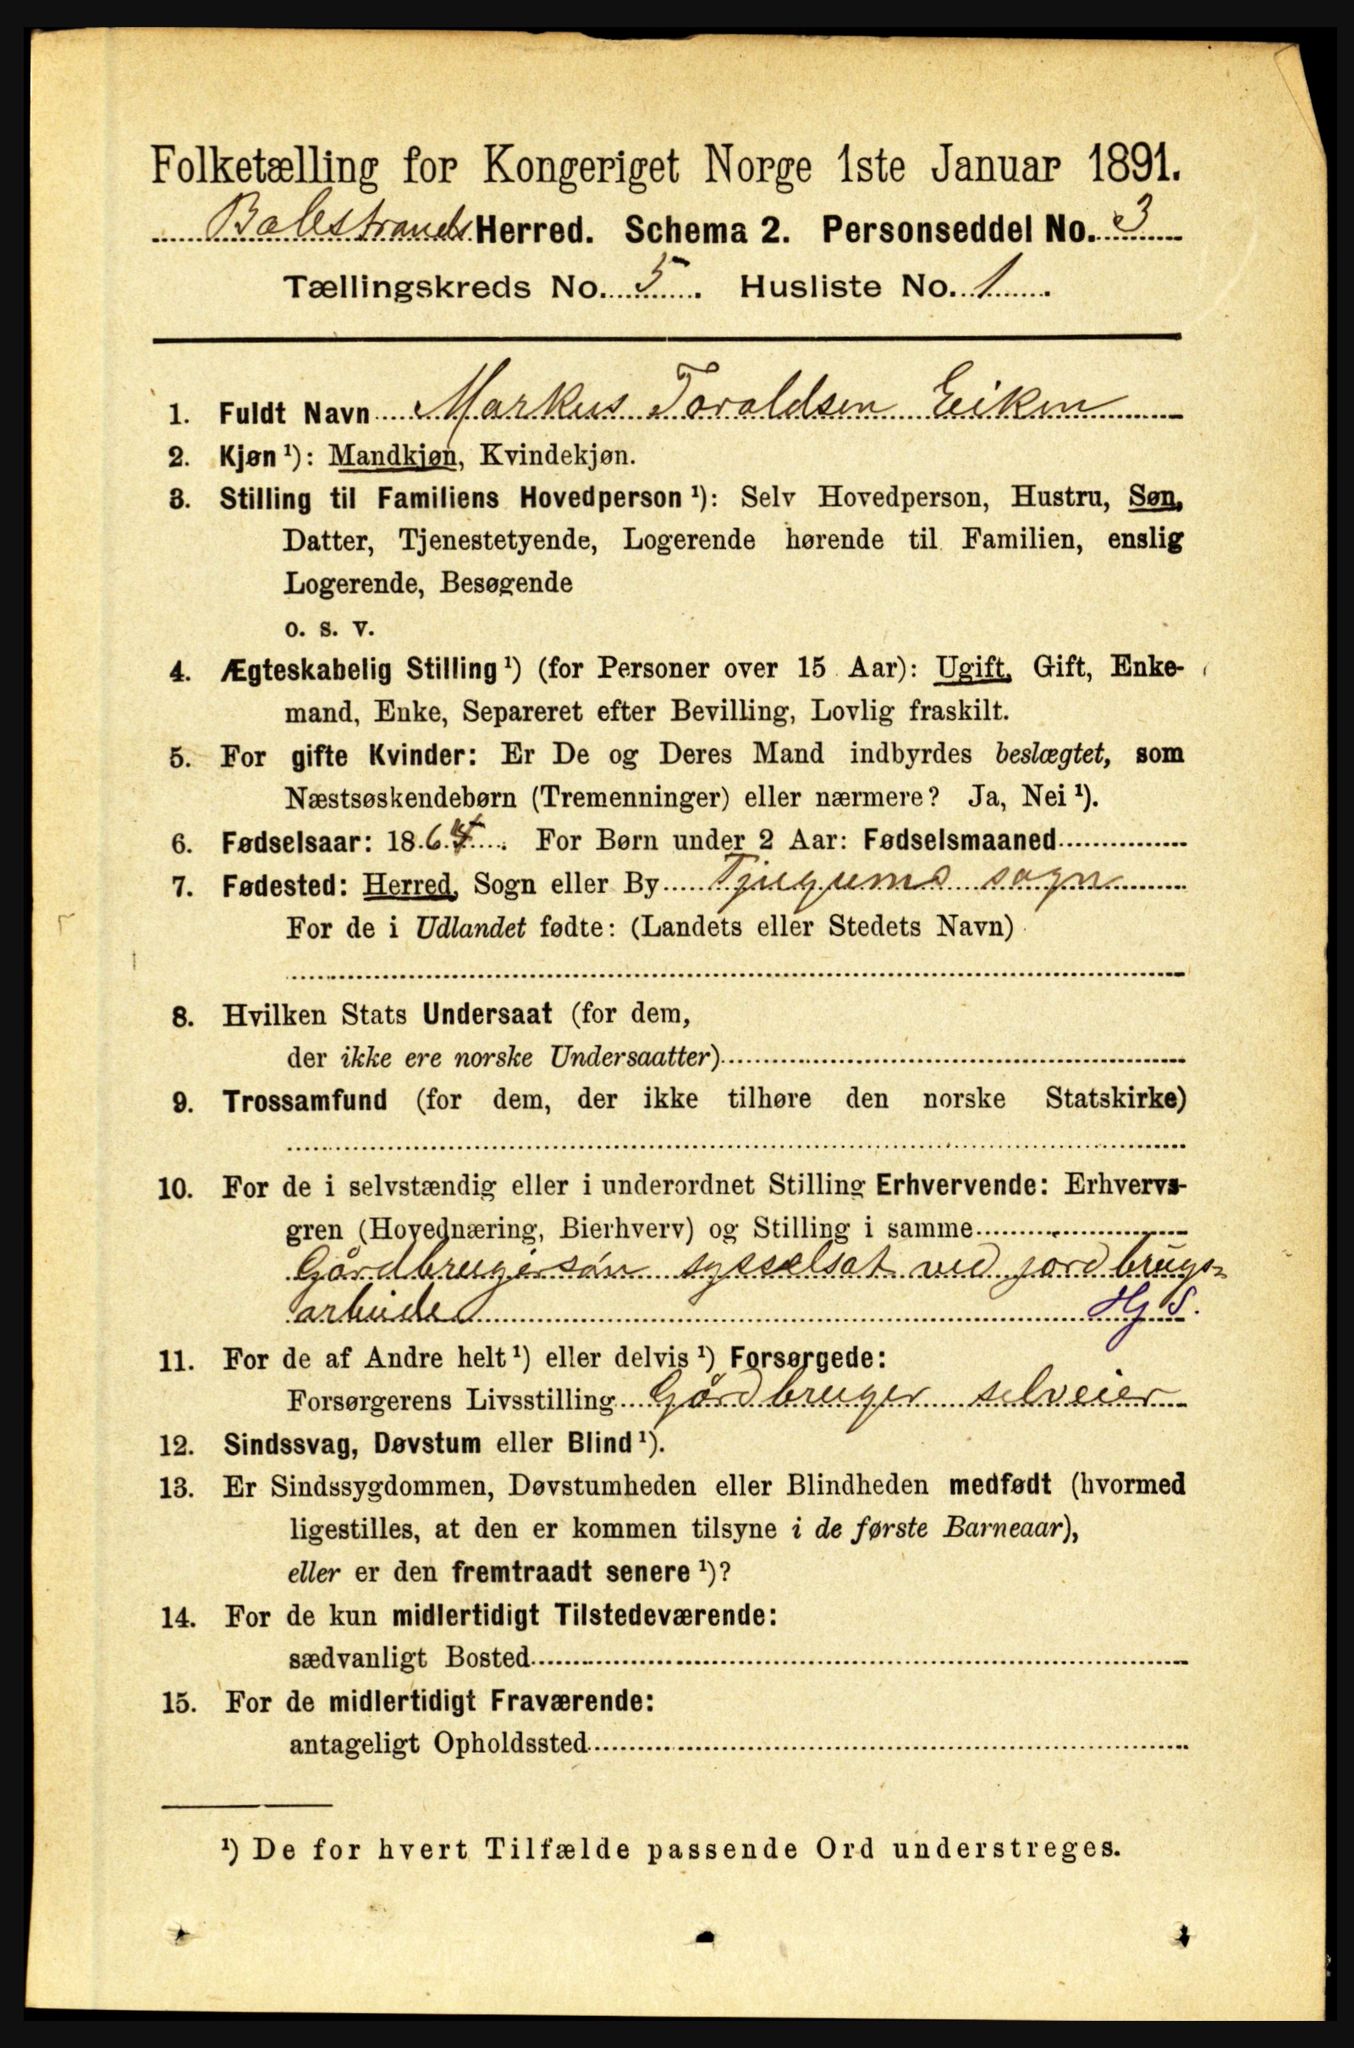 Folketælling for Kongeriget Norge 1ste Januar 1891.
Balestrands Herred. Schema 2. Personseddel No. 3
Tællingskreds No. 5. Husliste No. 1.
1. Fuldt Navn Markus Toraldsen Eiken
2. Kjøn ¹): Mandkjøn, Kvindekjøn.
3. Stilling til Familiens Hovedperson ¹): Selv Hovedperson, Hustru, Søn,
Datter, Tjenestetyende, Logerende hørende til Familien, enslig
Logerende, Besøgende
o. s. v.
4. Ægteskabelig Stilling ¹) (for Personer over 15 Aar): Ugift, Gift, Enke-
mand, Enke, Separeret efter Bevilling, Lovlig fraskilt.
5. For gifte Kvinder: Er De og Deres Mand indbyrdes beslægtet, som
Næstsøskendebørn (Tremenninger) eller nærmere? Ja, Nei ¹).
6. Fødselsaar: 186 . For Børn under 2 Aar: Fødselsmaaned
7. Fødested: Herred, Sogn eller By Tjugums sogn
For de i Udlandet fødte: (Landets eller Stedets Navn)
8. Hvilken Stats Undersaat (for dem,
der ikke ere norske Undersaatter)
9. Trossamfund (for dem, der ikke tilhøre den norske Statskirke)
10. For de i selvstændig eller i underordnet Stilling Erhvervende: Erhvervs-
gren (Hovednæring, Bierhverv) og Stilling i samme
Gårdbrugersøn sysselsat ved jordbrugs-
arbeide Hj S.
11. For de af Andre helt ¹) eller delvis ¹) Forsørgede:
Forsørgerens Livsstilling Gårdbruger selveier
12. Sindssvag, Døvstum eller Blind ¹).
13. Er Sindssygdommen, Døvstumheden eller Blindheden medfødt (hvormed
ligestilles, at den er kommen tilsyne i de første Barneaar),
eller er den fremtraadt senere ¹)?
14. For de kun midlertidigt Tilstedeværende:
sædvanligt Bosted
15. For de midlertidigt Fraværende:
antageligt Opholdssted
¹) De for hvert Tilfælde passende Ord understreges.